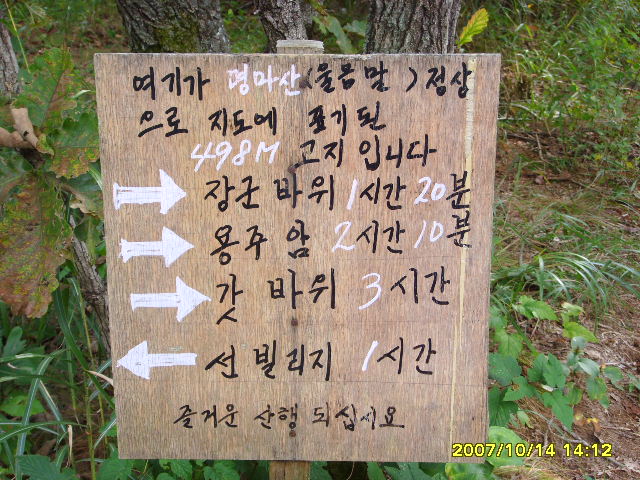 여기가 명마산(울음말) 정상
으로 지도에 표기된
498M 고지 입니다
장군 바위 1시간 20분
용주 암 2시간 10분
갓 바위 3시간
선 빌리지 1시간
즐거운 산행 되십시요
2007/10/14 14:12